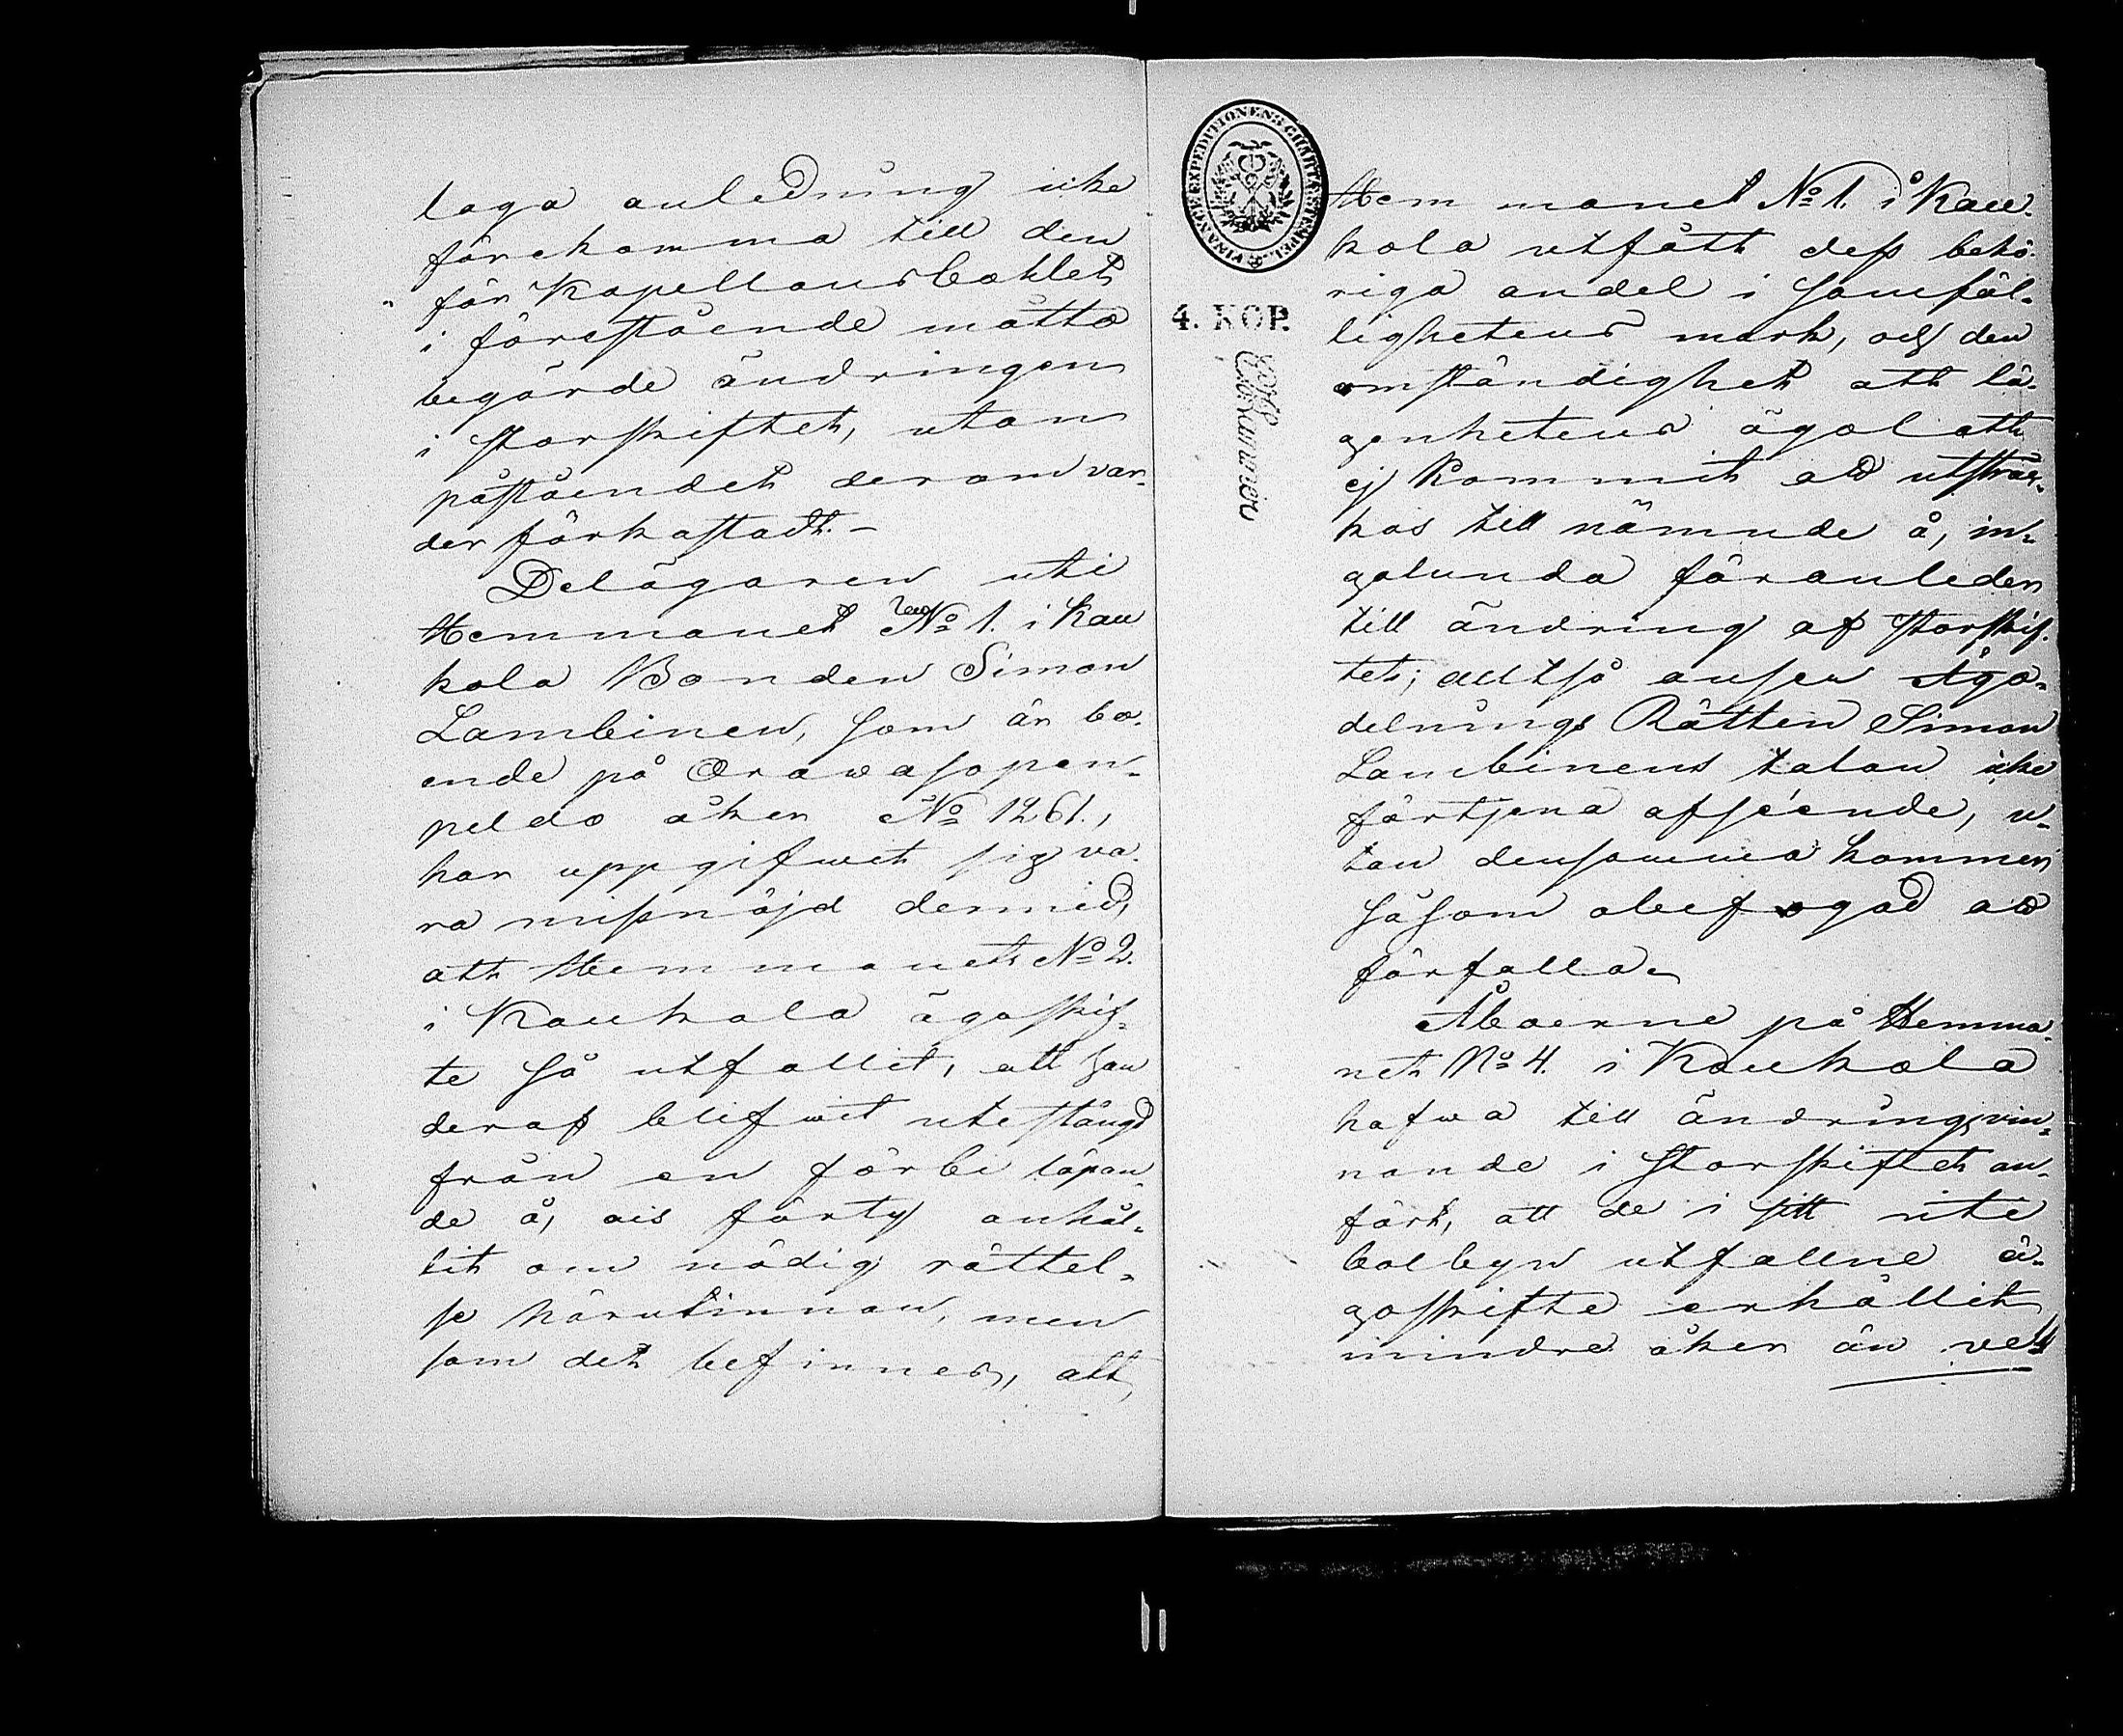 laga anledning icke
förekomma till den
för Kapellansbohlet
i förestående måtto
begärde ändringen
i storskiftet, utan
påståendet derom var-
der förkastadt.-
Delägaren uti
Hemmanet No 1. i Kau
kola Bonden Simon
Lambinen, som är bo-
ende på Orawasopen-
peldo åker No 1261.,
har uppgifwit sig va-
ra missnöjd dermed,
att Hemmanets No 2.
i Kaukola ägoskif-
te så utfallit, att han
deraf blifwit utestängd
från en förbi löpan-
de å, ais förty anhål-
lit om nödig rättel-
se härutinnan, men
som det befinnes, att
FINANCE EXPEDITIONENS CHARTÆ STEMPEL.
4. KOP.
Hemmanet No 1. i Kau-
kola utfått dess behö-
riga andel i samfäl-
lighetens mark, och den
omständighet att lä-
genhetens ägolott
ej kommit ad utsträc-
kas till nämnde å, in-
galunda föranleder
till ändring af storskif-
tet; alltså anser Ägo-
delnings Rätten Simon
Lambinens talan icke
förtjena afséende, u-
tan densamma kommer
såsom obefogad ad
förfalla.
Åboerne på Hemma-
net No 4. i Kaukola
hafwa till ändrings vin-
nande i Storskiftet an-
fört, att de i sitt ute
bolbyn utfallne ä-
goskifte erhållit
mindre åker än vett